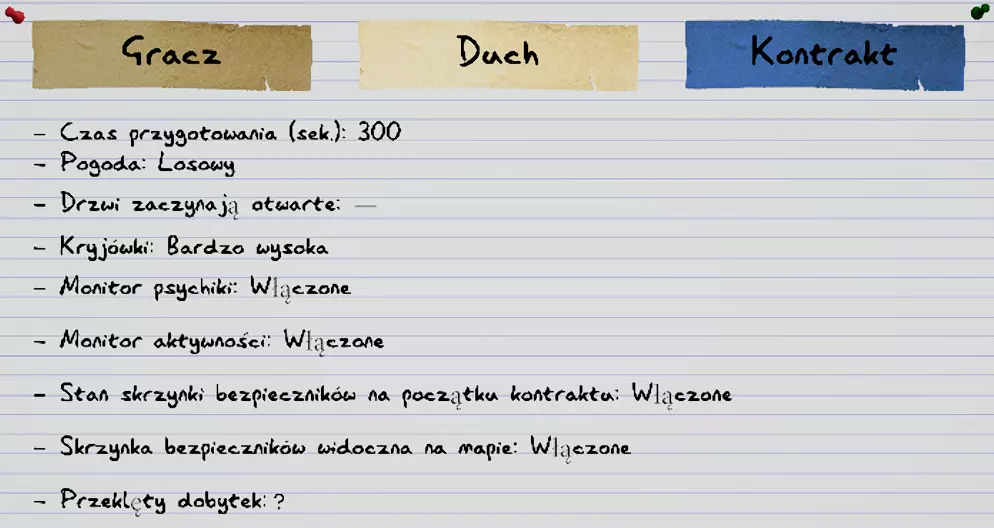 Gracz
Duch
Kontrakt
- Czas przygotowania (sek.): 300
- Pogoda: Losowy
- Drzwi zaczynają otwarte: —
- Kryjówki: Bardzo wysoka
- Monitor psychiki: Włączone
- Monitor aktywności: Włączone
- Stan skrzynki bezpieczników na początku kontraktu: Włączone
- Skrzynka bezpieczników widoczna na mapie: Włączone
- Przeklęty dobytek: ?